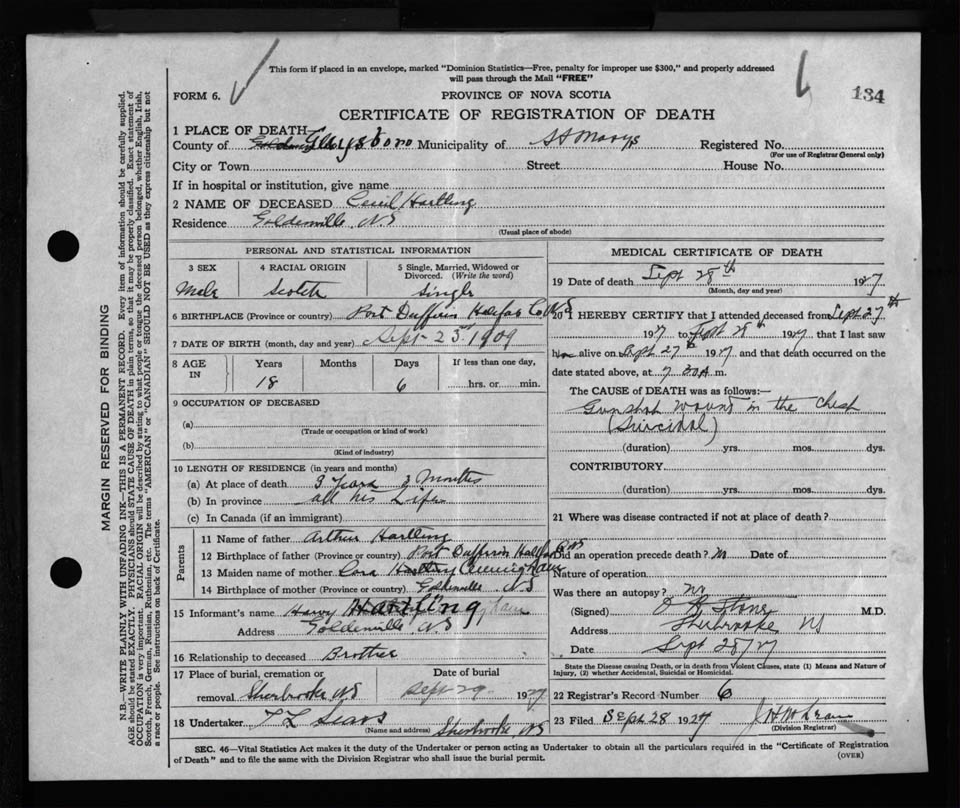 This form if placed in an envelope, marked "Dominion Statistics—Free, penalty for improper use $300," and properly addressed
will pass through the Mail "FREE"
FORM 6.
PROVINCE OF NOVA SCOTIA
134
CERTIFICATE OF REGISTRATION OF DEATH
1 PLACE OF DEATH
County of Guysboro Municipality of St Marys Registered No.
(For use of Registrar General only)
City or Town Street House No.
If in hospital or institution, give name
2 NAME OF DECEASED Cecil Hartling
Residence Goldenville N.S
(Usual place of abode)
PERSONAL AND STATISTICAL INFORMATION
3 SEX 4 RACIAL ORIGIN 5 Single, Married, Widowed or Divorced. (Write the word)
Male Scotch Single
6 BIRTHPLACE (Province or country) Port Dufferin Halifax Co NS
7 DATE OF BIRTH (month, day and year) Sept 23rd 1909
8 AGE IN Years Months Days If less than one day,
18 6 hrs. or min.
9 OCCUPATION OF DECEASED
(a)
(Trade or occupation or kind of work)
(b)
(Kind of industry)
10 LENGTH OF RESIDENCE (in years and months)
(a) At place of death 3 Years 3 Months
(b) In province all his Life
(c) In Canada (if an immigrant)
Parents
11 Name of father Arthur Hartling
12 Birthplace of father (Province or country) Port Dufferin Halifax Co NS
13 Maiden name of mother Cora Cunningham
14 Birthplace of mother (Province or country) Goldenville NS
15 Informant's name Harry Hartling
Address Goldenville NS
16 Relationship to deceased Brother
17 Place of burial, cremation or Date of burial
removal Sherbrooke NS Sept 29 1927
18 Undertaker Sherbrooke NS
(Name and address)
MEDICAL CERTIFICATE OF DEATH
19 Date of death Sept 28th 1927
(Month, day and year)
20 I HEREBY CERTIFY that I attended deceased from Sept 27th
1927 to Sept 28th 1927 that I last saw
him alive on Sept 27th 1927 and that death occurred on the
date stated above, at 7 30 A m.
The CAUSE of DEATH was as follows:—
Gunshot wound in the Chest
(Suicidal)
(duration) yrs. mos. dys.
CONTRIBUTORY
(duration) yrs. mos. dys.
21 Where was disease contracted if not at place of death?
Did an operation precede death? No Date of
Nature of operation
Was there an autopsy? No
(Signed) M.D.
Address Sherbrooke NS
Date Sept 28/27
State the Disease causing Death, or in death from Violent Causes, state (1) Means and Nature of
Injury, (2) whether Accidental, Suicidal or Homicidal.
22 Registrar's Record Number 6
23 Filed Sept 28 1927
(Division Registrar)
SEC. 46—Vital Statistics Act makes it the duty of the Undertaker or person acting as Undertaker to obtain all the particulars required in the "Certificate of Registration
of Death" and to file the same with the Division Registrar who shall issue the burial permit.
(OVER)
MARGIN RESERVED FOR BINDING
N.B.—WRITE PLAINLY WITH UNFADING INK—THIS IS A PERMANENT RECORD. Every item of information should be carefully supplied.
AGE should be stated EXACTLY. PHYSICIANS should STATE CAUSE OF DEATH in plain terms, so that it may be properly classified. Exact statement of
OCCUPATION is very important. RACIAL ORIGIN will be described by stating to what people or tongue the deceased person belonged, whether English, Irish,
Scotch, French, German, Russian, Ruthenian, etc. The terms "AMERICAN" or "CANADIAN" SHOULD NOT BE USED as they express citizenship but not
a race or people. See instructions on back of Certificate.